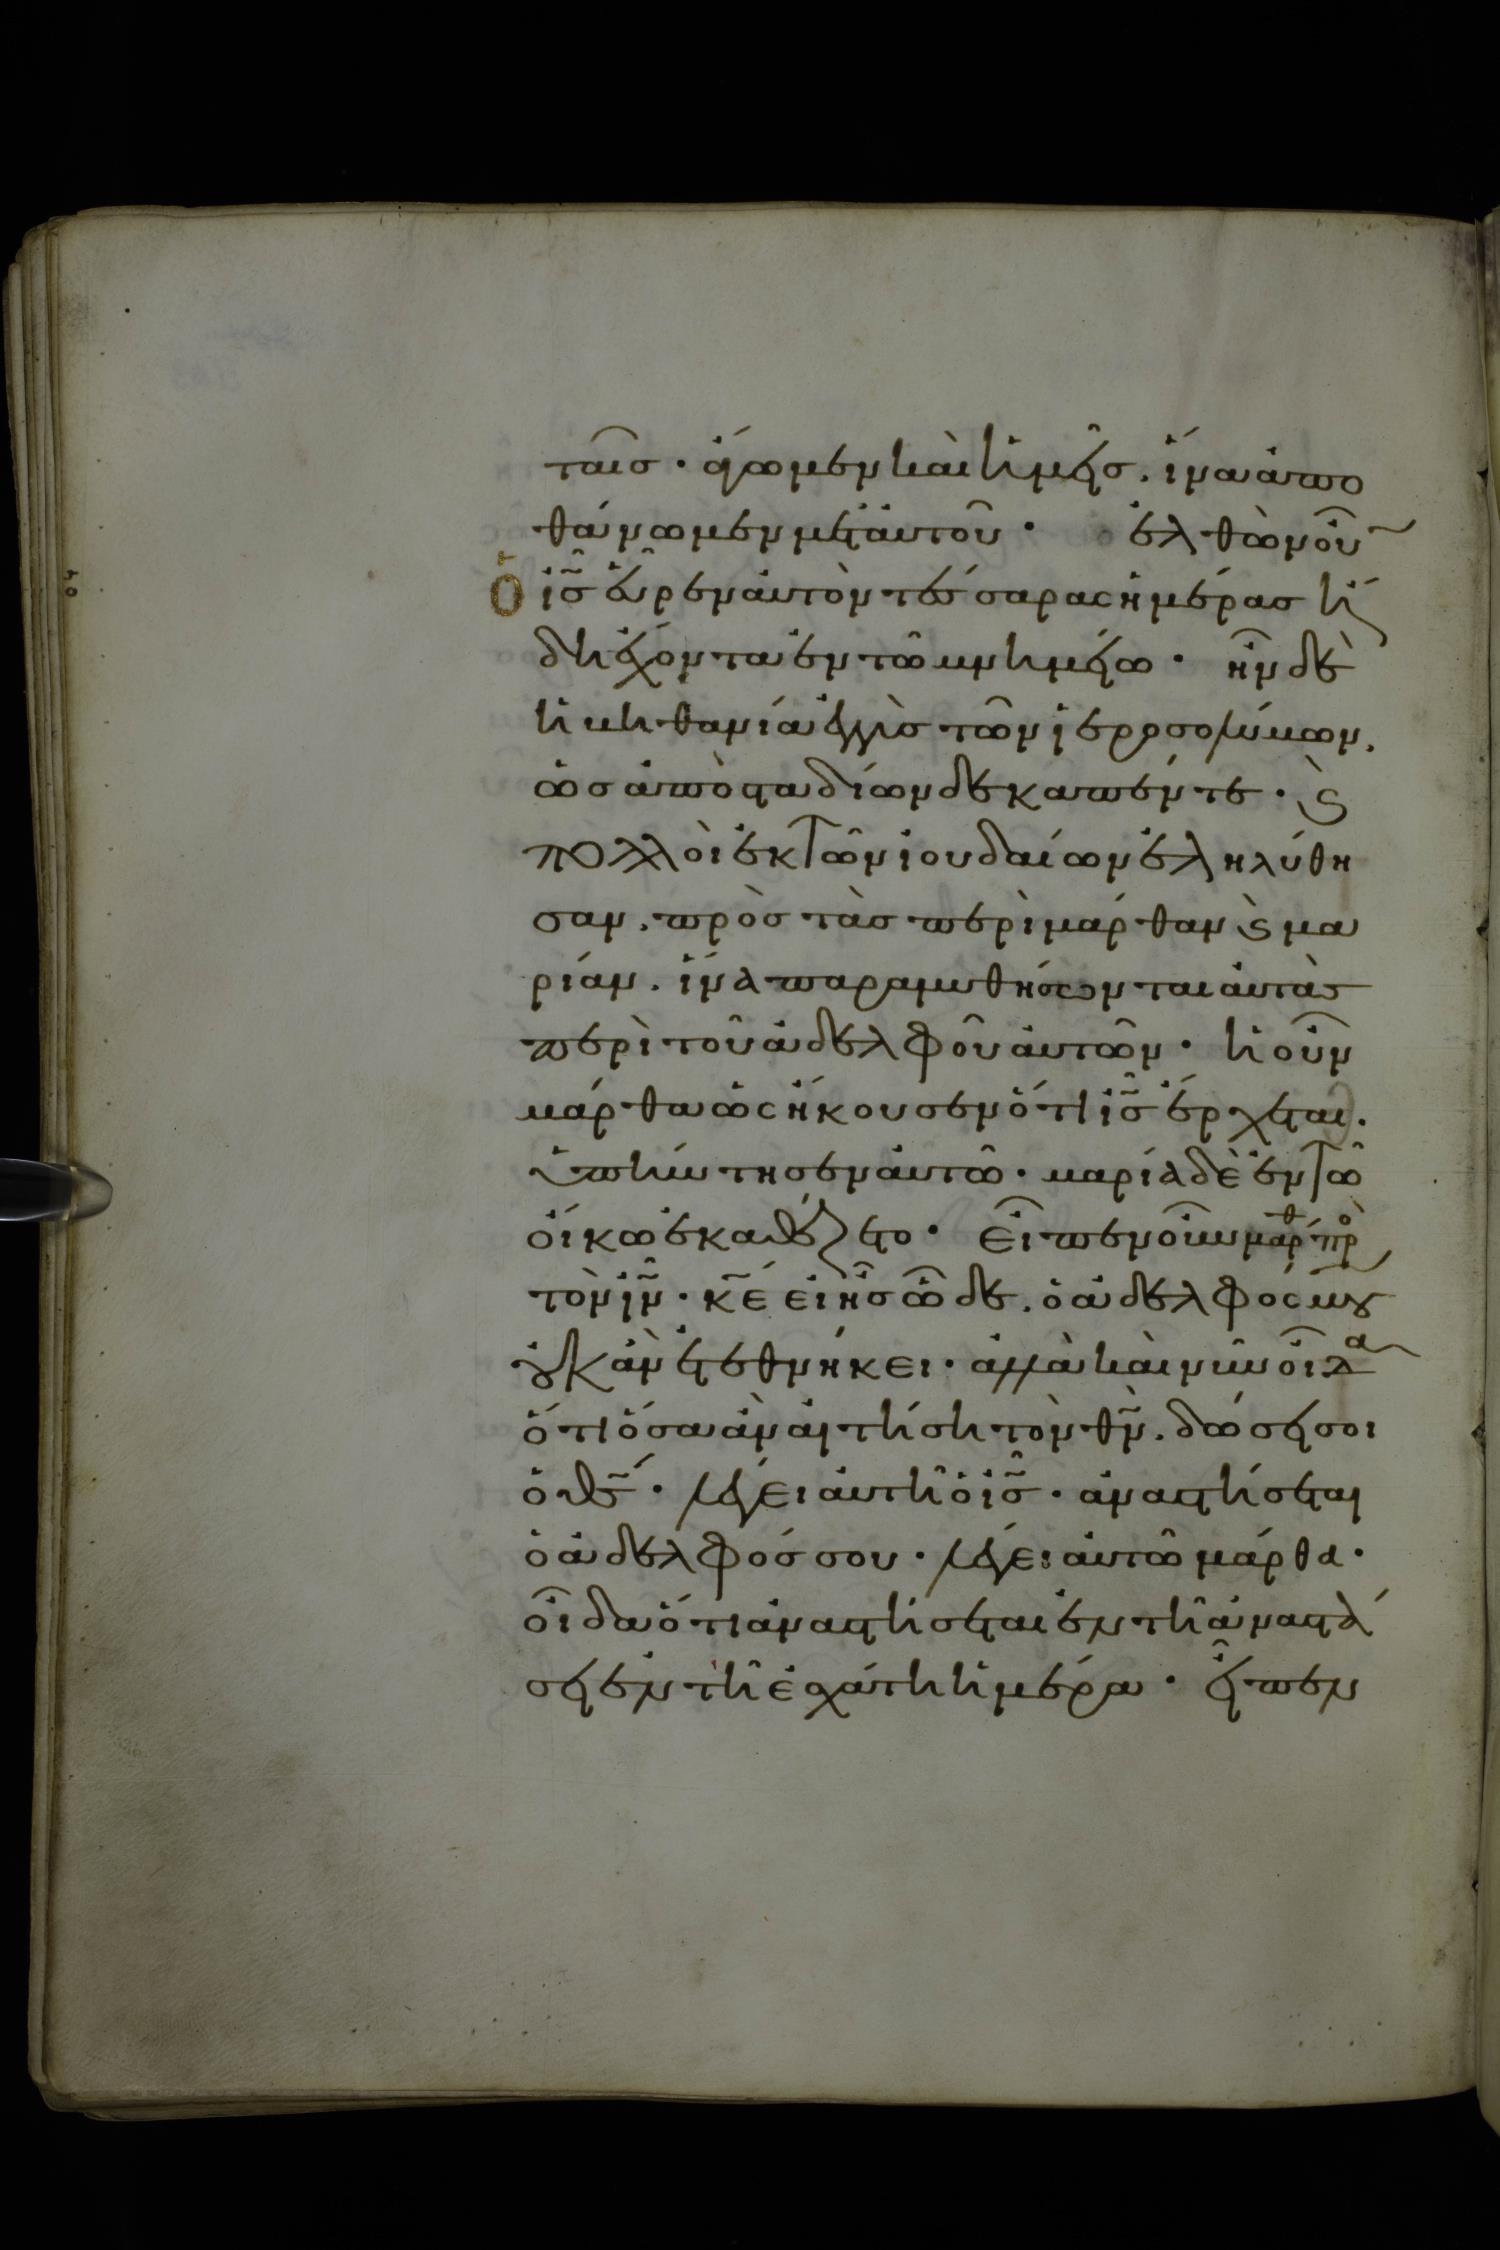 ταῖσ· ἄγωμεν καὶ ἡμεῖσ. ἵνα ἀπο
θάνωμεν μετ αὐτοῦ· ἐλθὼν οὖ
ὁ ις̃ εὗρεν αὐτὸν τέσσαρας ἡμέρασ ἤ
δη ἔχοντα ἐν τῶ μνημείω· ἦν δὲ
ἡ βηθανία ἐγγὺσ τῶν ἱεροσολύμων.
ὡσ ἀπὸ σταδίων δεκαπέντε· ϗ
πολλοὶ ἐκ τῶν ἰουδαίων ἐληλύθη
σαν. πρὸσ τὰσ περὶ μάρθαν ϗ μα
ρίαν. ἵνα παραμυθήσονται αὐτὰσ
περὶ τοῦ ἀδελφοῦ αὐτῶν· ἡ οὖν
μάρθα ὡς ἤκουσεν ὅτι ις̃ ἔρχεται.
ὑπήντησεν αὐτῶ· μαρία δὲ ἐν τῶ
οἴκω ἐκαθέζετο· εἶπεν οὖν μάρθ πρὸ
τὸν ιν̃· κε̃ εἰ ἦσ ὧδε. ὁ ἀδελφός μου
οὐκ ἂν ἐτεθνήκει· ἀλλὰ καὶ νῦν οἶδα
ὅτι ὅσα ἂν αἰτήση τὸν θν̃. δώσει σοι
ὁ θς̃· λέγει αὐτῆ ὁ ις̃· ἀναστήσεται
ὁ ἀδελφόσ σου· λέγει αὐτῶ μάρθα·
οἶδα ὅτι ἀναστήσεται ἐν τῆ ἀναστά
σει ἐν τῆ ἐσχάτη ἡμέρα· εἶπεν